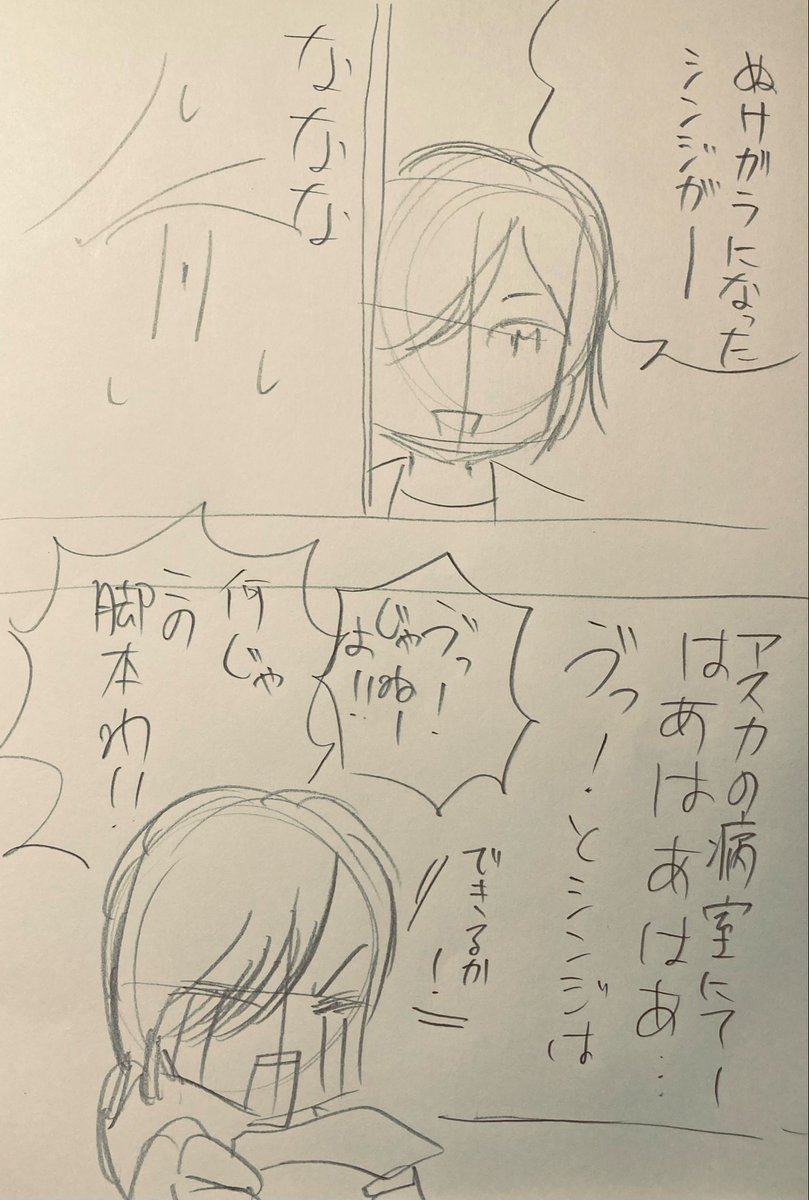 ぬけがらになった
シンジがー
ななな
アスカの病室にてー
はあはあはあはあ…
ゔっ！とシンジは
ゔっ！
じゃねー
よ!!
何じゃ
この
脚本わ!!
できるか
！